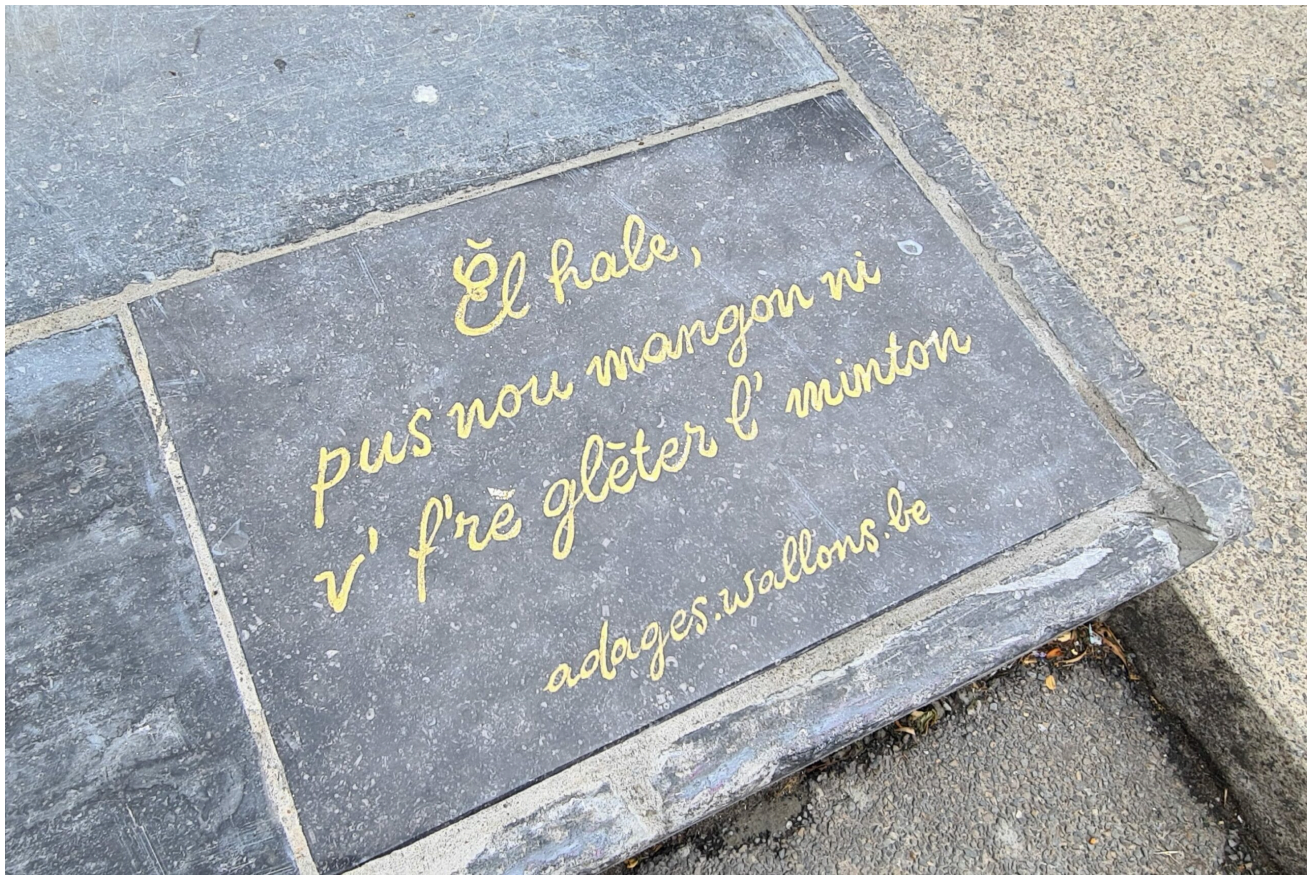 Ĕl hale,
pus nou mangon ni
v' f'rè glèter l' minton
adages.wallons.be